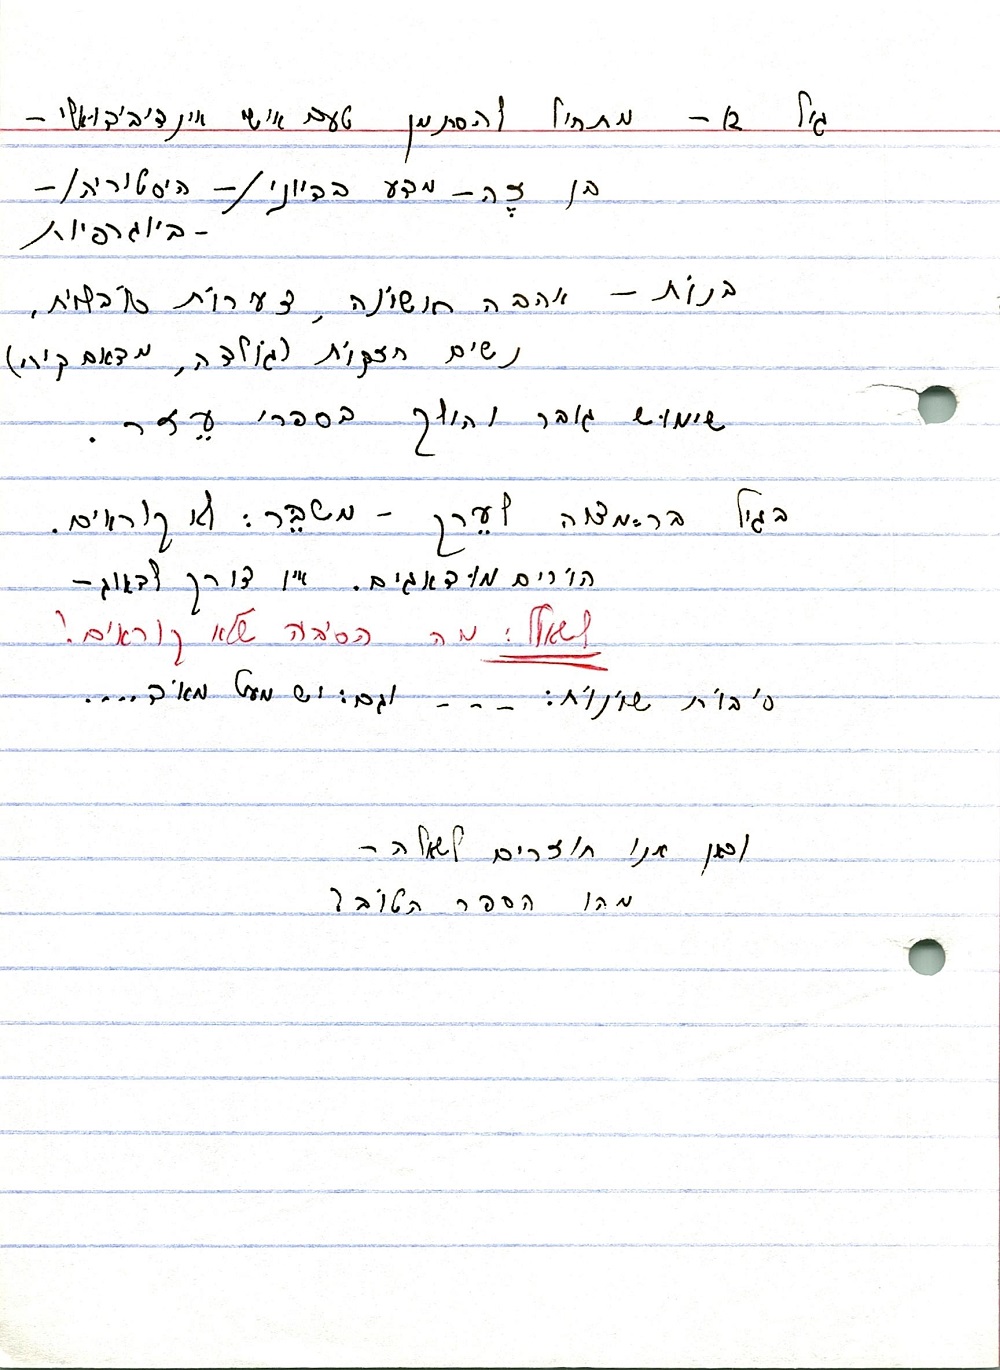 גיל 12 – מתחיל להסתמן טעם אישי אינדיבידואלי –
בן זֶה – מדע בדיוני /– היסטוריה /–
– ביוגרפיות
בנות – אהבה ראשונה, צערות סובלות,
נשים חזקות (גולדה, מדאם קירי)
שימוש גובר והולך בספרי עֵזר.
בגיל בר-מצווה לעֵרך – משבֵּר: לא קוראים.
הורים מודאגים. אין צורך לדאוג –
לשאול: מה הסיבה שלא קוראים?
סיבות שונות: – – – וגם: יש מעט מאוד....
וכאן אנו חוזרים לשאלה –
מהו הספר הטוב?